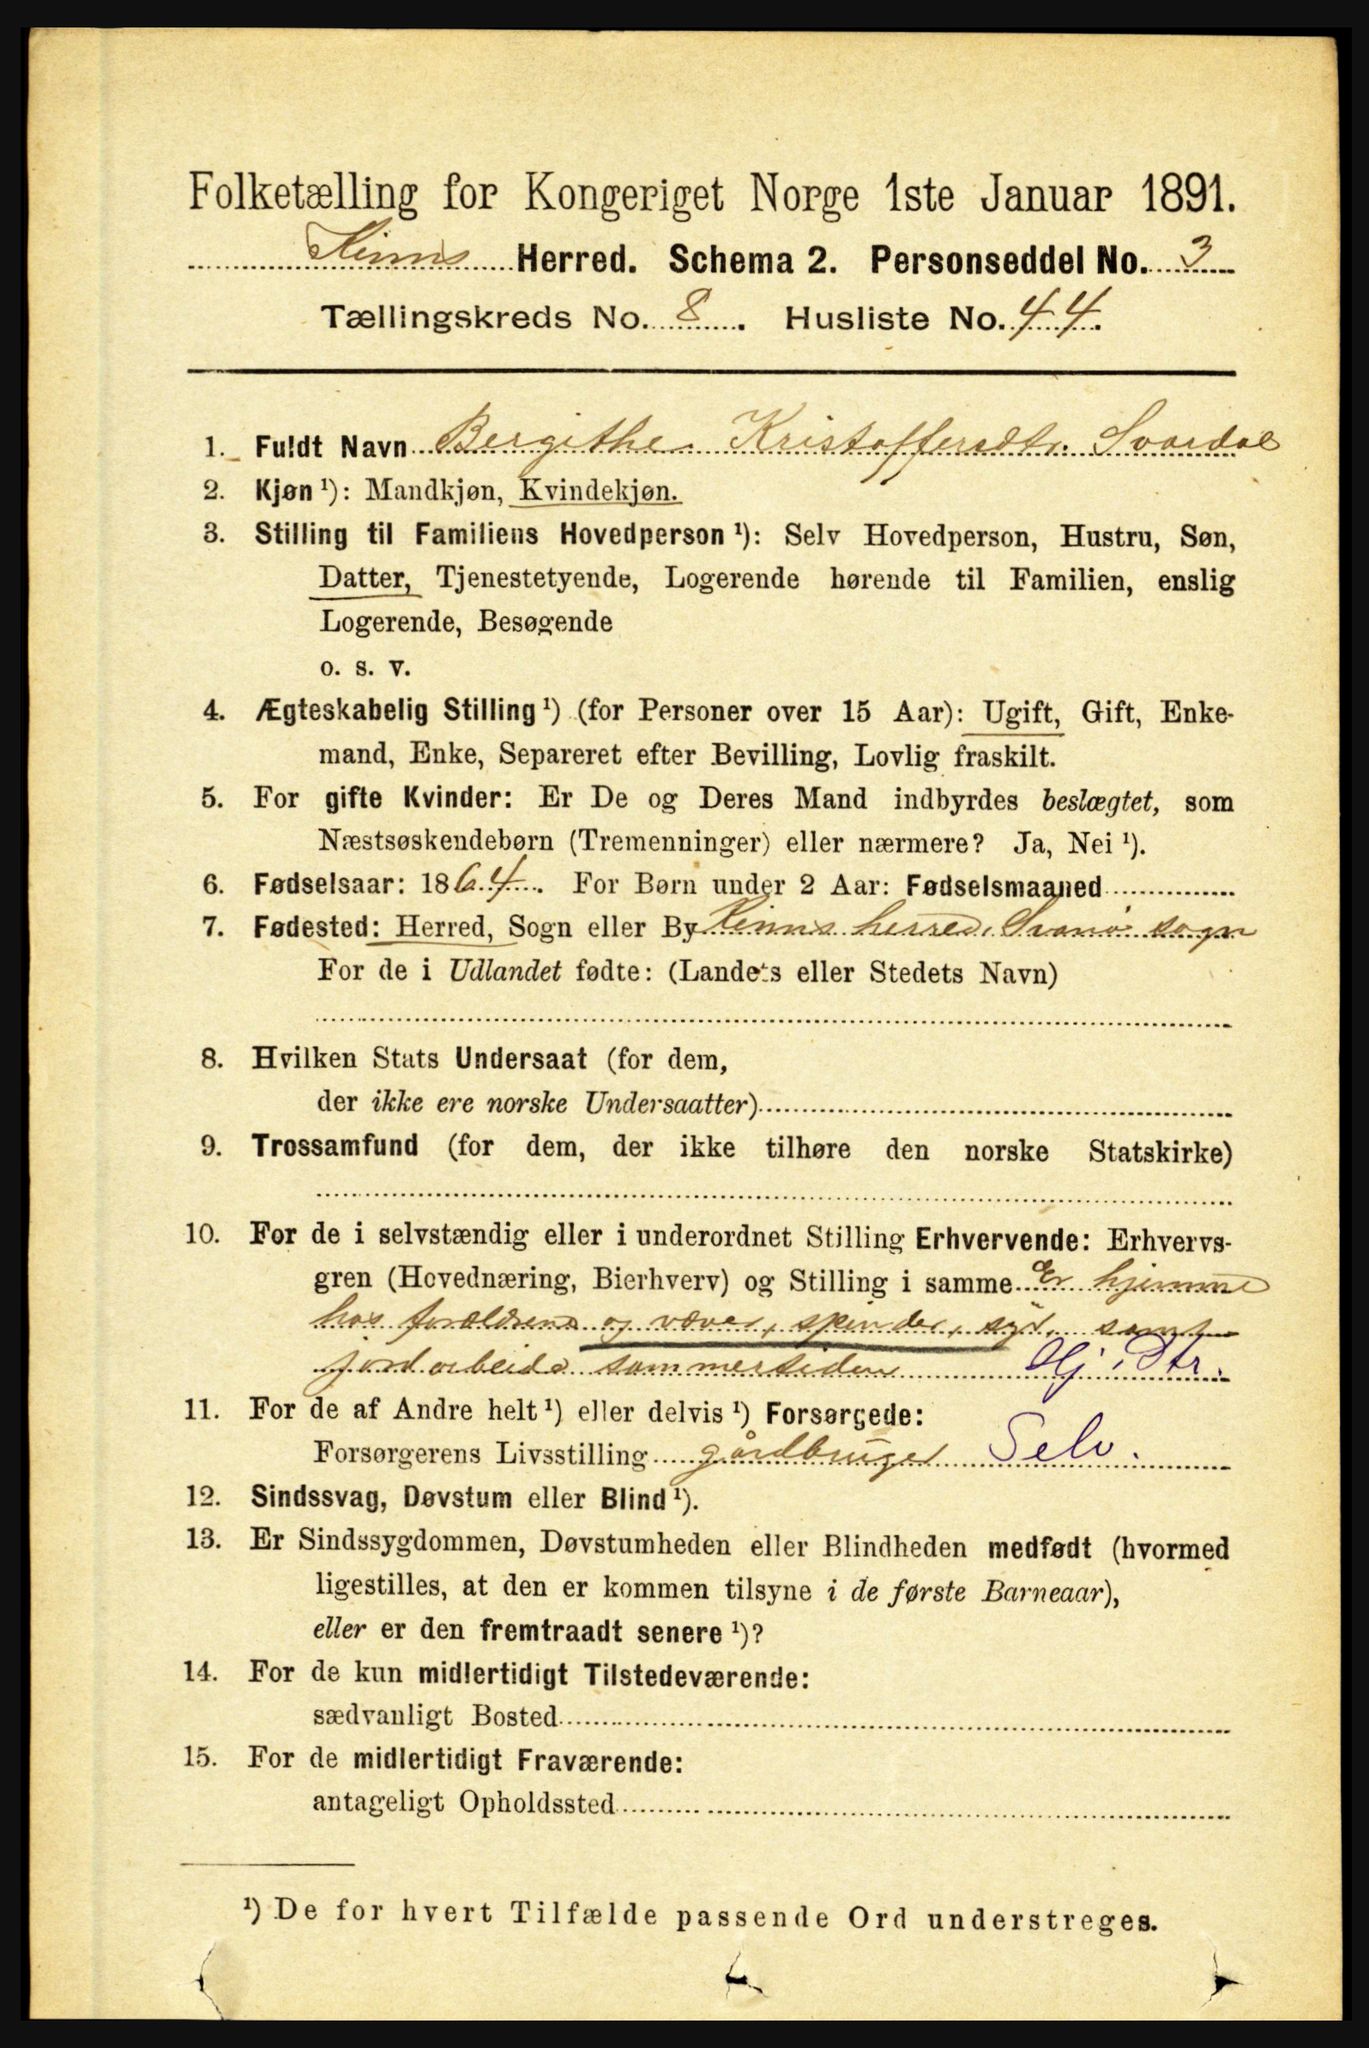 Folketælling for Kongeriget Norge 1ste Januar 1891.
Kinns Herred. Schema 2. Personseddel No. 3
Tællingskreds No. 8. Husliste No. 44.
1. Fuldt Navn Bergithe Kristoffersdtr. Svardal
2. Kjøn ¹): Mandkjøn, Kvindekjøn.
3. Stilling til Familiens Hovedperson ¹): Selv Hovedperson, Hustru, Søn,
Datter, Tjenestetyende, Logerende hørende til Familien, enslig
Logerende, Besøgende
o. s. v.
4. Ægteskabelig Stilling ¹) (for Personer over 15 Aar): Ugift, Gift, Enke-
mand, Enke, Separeret efter Bevilling, Lovlig fraskilt.
5. For gifte Kvinder: Er De og Deres Mand indbyrdes beslægtet, som
Næstsøskendebørn (Tremenninger) eller nærmere? Ja, Nei ¹).
6. Fødselsaar: 1864. For Børn under 2 Aar: Fødselsmaaned
7. Fødested: Herred, Sogn eller By Kinns herred, Svanø sogn
For de i Udlandet fødte: (Landets eller Stedets Navn)
8. Hvilken Stats Undersaat (for dem,
der ikke ere norske Undersaatter)
9. Trossamfund (for dem, der ikke tilhøre den norske Statskirke)
10. For de i selvstændig eller i underordnet Stilling Erhvervende: Erhvervs-
gren (Hovednæring, Bierhverv) og Stilling i samme Er hjemme
hos forældrene og væver, spinder, syr, samt
jordarbeide sommertiden Hj. Dtr.
11. For de af Andre helt ¹) eller delvis ¹) Forsørgede:
Forsørgerens Livsstilling gårdbruger Selv.
12. Sindssvag, Døvstum eller Blind ¹).
13. Er Sindssygdommen, Døvstumheden eller Blindheden medfødt (hvormed
ligestilles, at den er kommen tilsyne i de første Barneaar),
eller er den fremtraadt senere ¹)?
14. For de kun midlertidigt Tilstedeværende:
sædvanligt Bosted
15. For de midlertidigt Fraværende:
antageligt Opholdssted
¹) De for hvert Tilfælde passende Ord understreges.